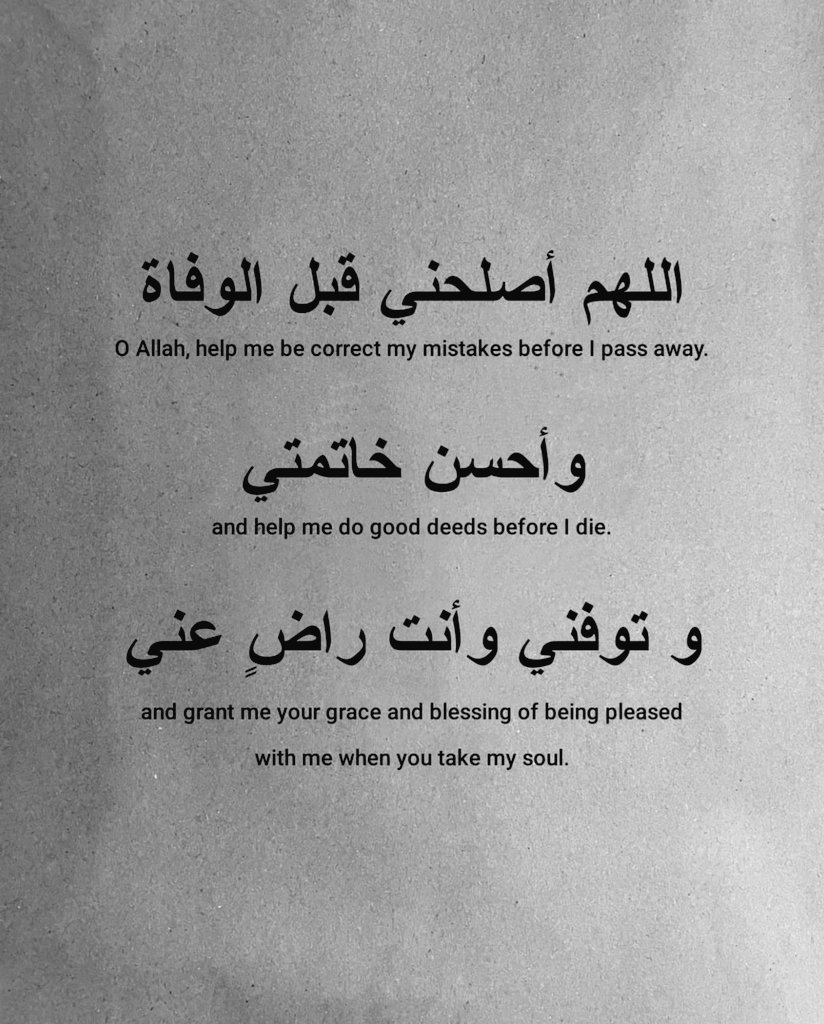 اللهم أصلحني قبل الوفاة
O Allah, help me be correct my mistakes before I pass away.
وأحسن خاتمتي
and help me do good deeds before I die.
و توفني وأنت راضٍ عني
and grant me your grace and blessing of being pleased
with me when you take my soul.